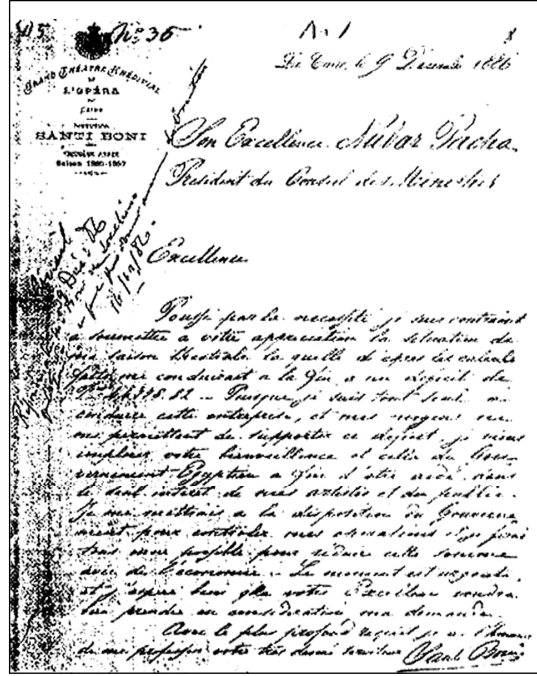 N° 36
Le Caire, le 9 Décembre 1886
GRAND THÉATRE KHÉDIVIAL
DE
L'OPÉRA
DU
CAIRE
DIRECTION
SANTI BONI
Saison 1886-1887
Son Excellence Nubar Pacha
Président du Conseil des Ministres
Excellence
Poussé par la necessité je suis contraint
à soumettre a vôtre appreciation la situation de
ma saison théatrale la quelle d'apres les calculs
faits me conduirait a la fin a un deficit de
Puisque je suis tout seul a
conduire cette entreprise, et mes moyens ne
me permettent de supporter ce deficit je viens
implorer votre bienveillance et celle du Gou-
vernement Egyptien a fin d'etre aidé dans
le seul interet de mes artistes et du public.
Je me mettrais a la disposition du Gouverne
ment pour controler mes operations
mon possible pour réduire cette somme
avec de l'économie. Le moment est urgent,
et j'espere bien que votre Excellence voudra
bien prendre en consideration ma demande.
Avec le plus profond respect j'ai l'honneur
de me professer votre très devoué serviteur Santi Boni